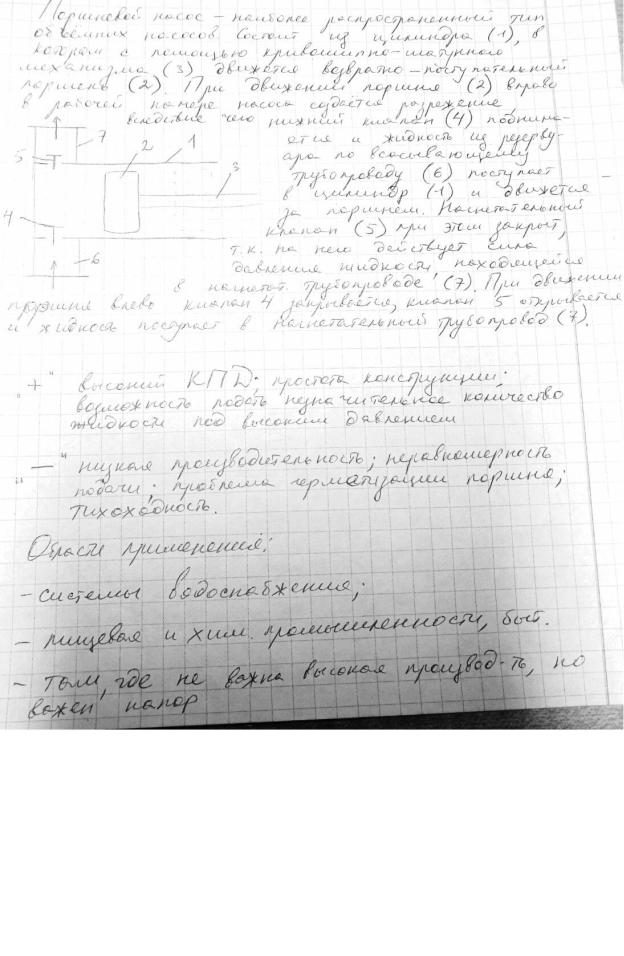 Поршневой насос – наиболее распространенный тип
объёмных насосов. Состоит из цилиндра (1), в
котором с помощью кривошипно-шатунного
механизма (3) движется возвратно-поступательный
поршень (2). При движении поршня (2) вправо
в рабочей камере насоса создаётся разрежение,
вследствие чего нижний клапан (4) поднима-
ется и жидкость из резерву-
ара по всасывающему
трубопроводу (6) поступает
в цилиндр (1) и движется
за поршнем. Нагнетательный
клапан (5) при этом закрыт,
т.к. на него действует сила
давления жидкости, находящейся
в нагнетат. трубопроводе (7). При движении
поршня влево клапан 4 закрывается, клапан 5 открывается
и жидкость поступает в нагнетательный трубопровод (7).
7
2
1
5
3
4
6
"+" высокий КПД; простота конструкции;
возможность подать незначительное количество
жидкости под высоким давлением
"—" низкая производительность; неравномерность
подачи; проблема герметизации поршня;
тихоходность.
Области применения:
– системы водоснабжения;
– пищевая и хим. промышленности, быт.
– там, где не важна высокая производ-ть, но
важен напор